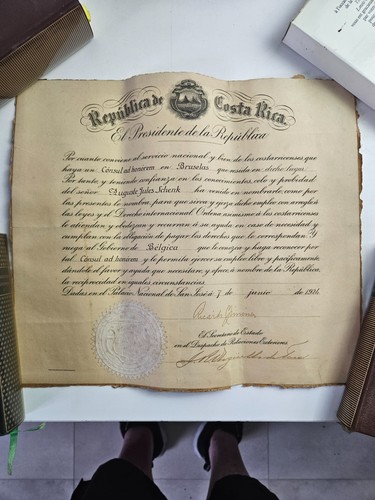 República de Costa Rica
El Presidente de la República
Por cuanto conviene al servicio nacional y bien de los costarricenses que
haya un Cónsul ad honorem en Bruselas que resida en dicho lugar
Por tanto y teniendo confianza en los conocimientos, celo y probidad
del señor Auguste Jules Schenk ha venido nombrarle, como por
las presentes le nombra, para que sirva y ejerza dicho empleo con arreglo á
las leyes y el Derecho internacional Ordena asimismo á los costarricenses
le atiendan y obedezcan y recurran á su ayuda en caso de necesidad y
cumplan con la obligación de pagar los derechos que le correspondan. Y
ruega al Gobierno de Bélgica que le tenga y haga reconocer por
tal Cónsul ad honorem y le permita ejercer su empleo libre y pacíficamente
dándole el favor y ayuda que necesitare, y ofrece á nombre de la República,
la reciprocidad en iguales circunstancias.
Dadas en el Palacio Nacional de San José á 7 de junio de 19
Ricardo Jiménez
El Secretario de Estado
en el Despacho de Relaciones Exteriores